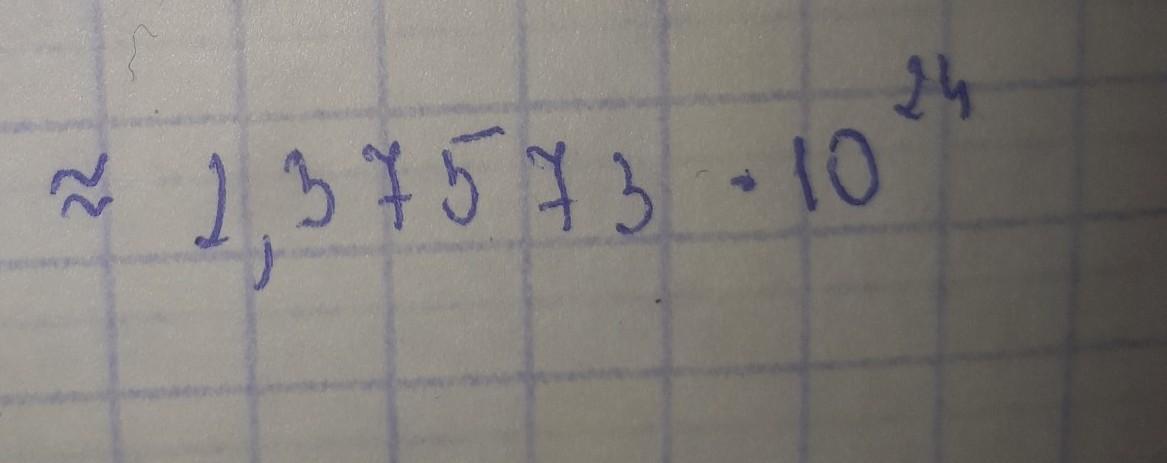 ≈ 2,37573 · 10²⁴